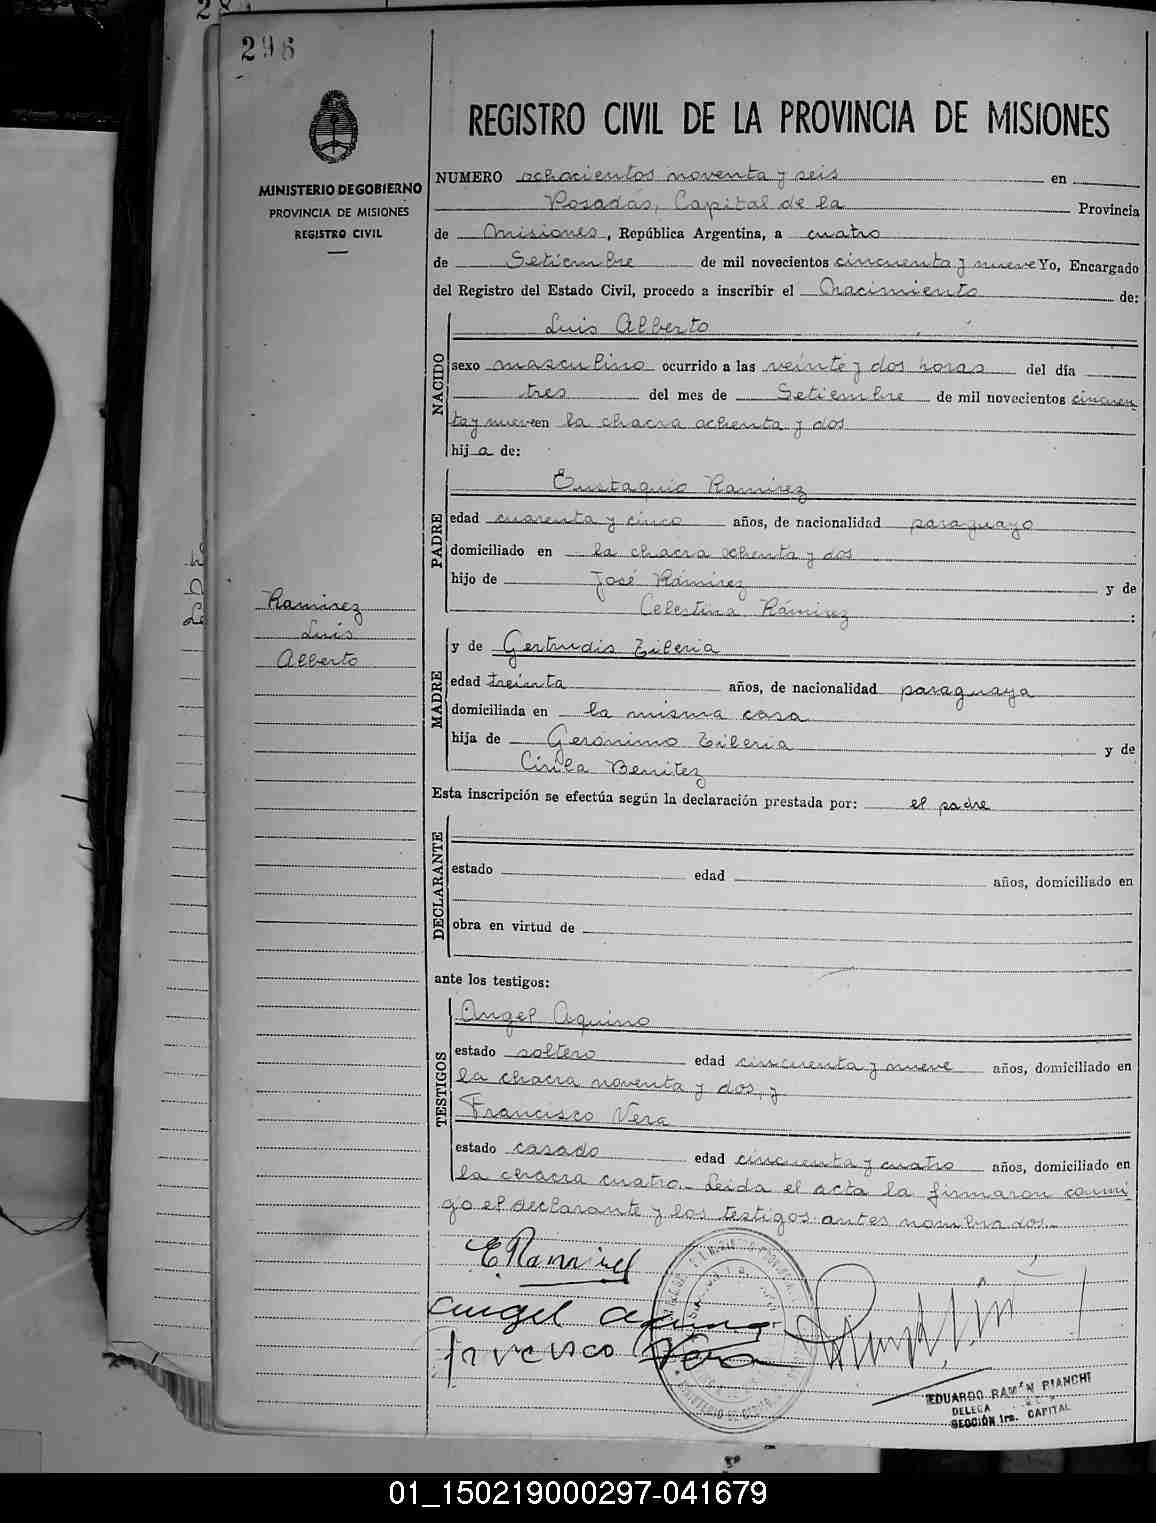 296
REGISTRO CIVIL DE LA PROVINCIA DE MISIONES
MINISTERIO DE GOBIERNO
PROVINCIA DE MISIONES
REGISTRO CIVIL
NUMERO ochocientos noventa y seis en
Posadas, Capital de la Provincia
de Misiones, República Argentina, a cuatro
de Setiembre de mil novecientos cincuenta y nueve Yo, Encargado
del Registro del Estado Civil, procedo a inscribir el Nacimiento de:
NACIDO
Luis Alberto
sexo masculino ocurrido a las veinte y dos horas del día
tres del mes de Setiembre de mil novecientos cincuen
ta y nueve en la chacra ochenta y dos
hij a de:
PADRE
Eustaquio Ramirez
edad cuarenta y cinco años, de nacionalidad paraguayo
domiciliado en la chacra ochenta y dos
hijo de José Rámirez y de
Celestina Rámirez :
Ramirez
Luis
Alberto
MADRE
y de Gertrudis Zileria
edad treinta años, de nacionalidad paraguaya
domiciliada en la misma casa
hija de Gerónimo Zileria y de
Cirila Benitez
Esta inscripción se efectúa según la declaración prestada por: el padre
DECLARANTE
estado edad años, domiciliado en
obra en virtud de
ante los testigos:
TESTIGOS
Angel Aquino
estado soltero edad cincuenta y nueve años, domiciliado en
la chacra noventa y dos, y
Francisco Vera
estado casado edad cincuenta y cuatro años, domiciliado en
la chacra cuatro.- Leida el acta la firmaron conmi-
go el declarante y los testigos antes nombrados.-
E Ramirez
angel aquino
francisco Vera
EDUARDO RAMÓN BIANCHI
SECCIÓN 1ra. CAPITAL
01_150219000297-041679